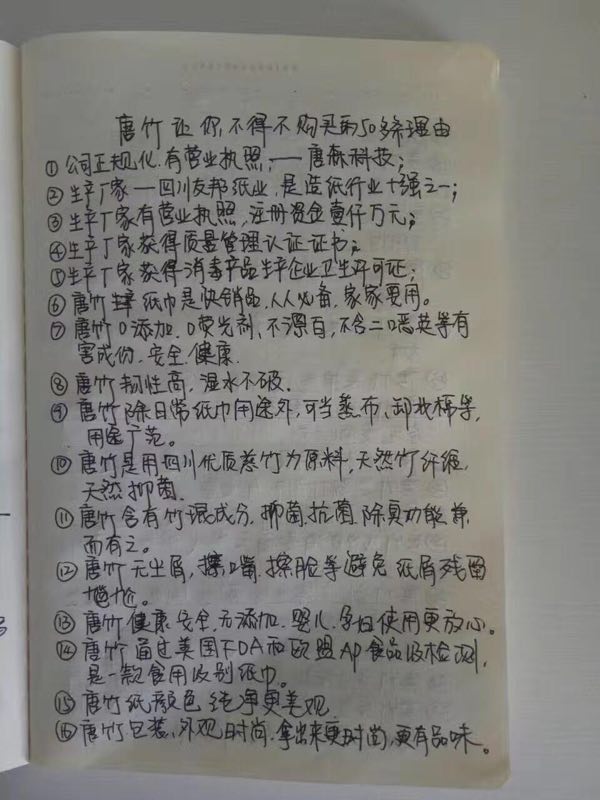 唐竹让你不得不购买的50多条理由
①公司正规化.有营业执照,——唐森科技;
②生产厂家—四川友邦纸业,是造纸行业十强之一;
③生产厂家有营业执照,注册资金壹仟万元;
④生产厂家获得质量管理认证证书;
⑤生产厂家获得消毒产品生产企业卫生许可证;
⑥唐竹 纸巾是快销品,人人必备.家家要用。
⑦唐竹0添加.0荧光剂、不漂白,不含二口恶英等有
害成份.安全.健康.
⑧唐竹韧性高,湿水不破.
⑨唐竹除日常纸巾用途外,可当蒸布、卸妆棉等,
用途广范。
⑩唐竹是用四川优质慈竹为原料,天然竹纤维,
天然抑菌.
⑪唐竹含有竹琨成分.抑菌.抗菌.除臭功能兼
而有之。
⑫唐竹无尘屑,擦嘴.擦脸等避免纸屑残留
尴尬。
⑬唐竹健康.安全.无添加.婴儿.孕妇使用更放心。
⑭唐竹通过美国FDA和欧盟AP食品级检测,
是一款食用级别纸巾。
⑮唐竹纸颜色纯净更美观
⑯唐竹包装、外观时尚.拿出来更时尚,更有品味。